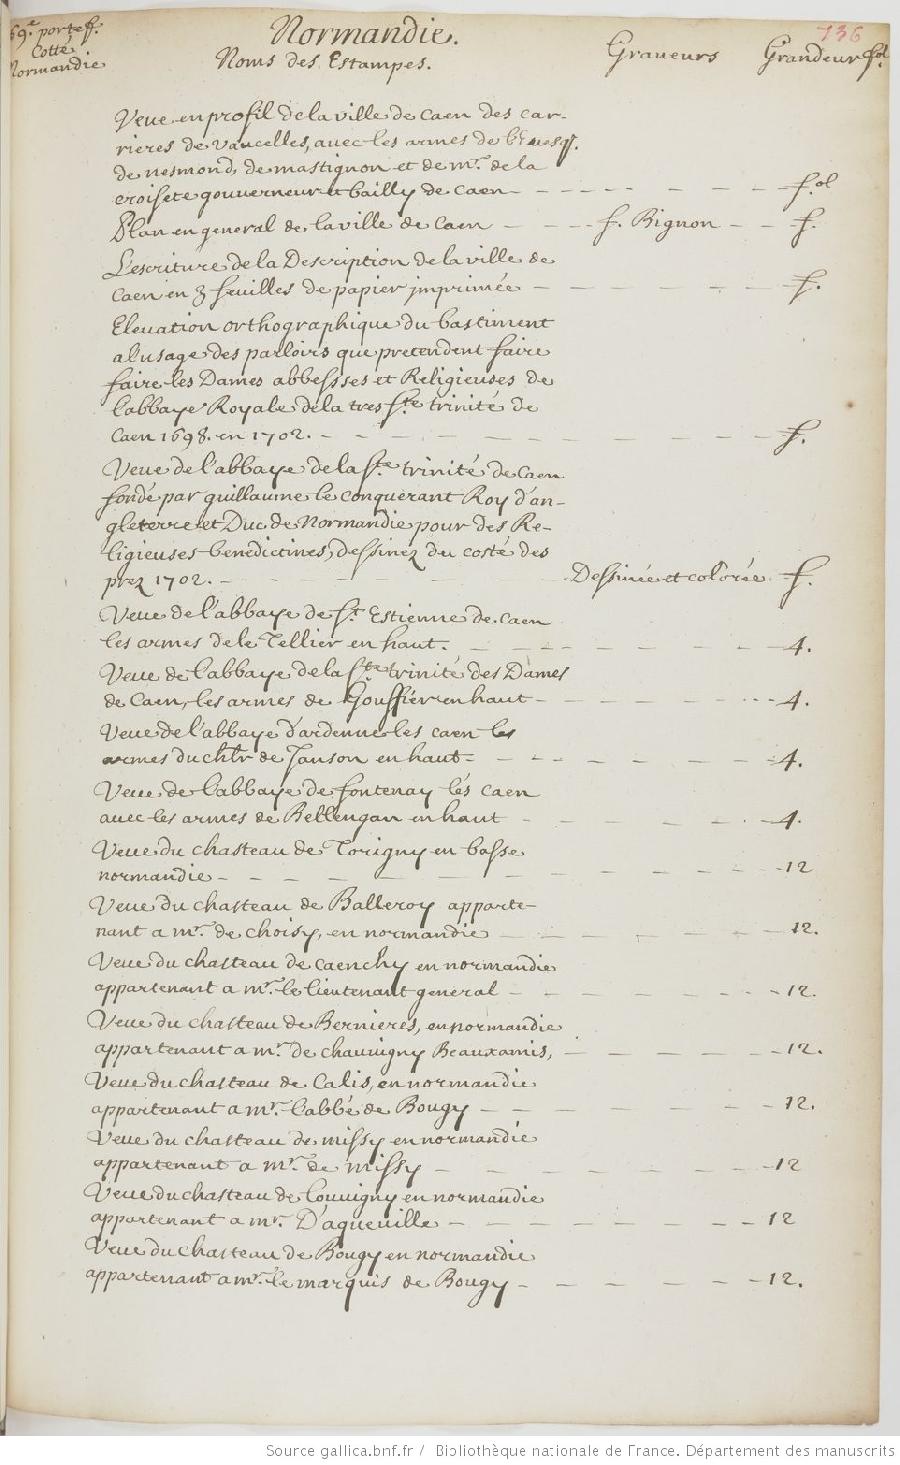 69e portef.
Cotté
Normandie
Normandie.
136
Noms des Estampes.
Graveurs
Grandeur fol.
Veue en profil de la ville de Caen des car-
rieres de Vaucelles, avec les armes de
de nesmond, de mastignon et de mr. de la
croisete gouverneur et bailly de Caen - - - - - - - - fol
Plan en general de la ville de Caen - - - - f. Bignon - - f.
L'escriture de la Description de la ville de
Caen en 3 feuilles de papier jmprimée - - - - - - - f.
Elevation orthographique du bastiment
a l'usage des parloirs que pretendent faire
faire les Dames abbessses et Religieuses de
l'abbaye Royale de la tres ste. trinité de
Caen 1698. en 1702. - - - - - - - - - - - f.
Veue de l'abbaye de la ste. trinité de Caen
fondé par guillaume le conquerant Roy d'an-
gleterre et Duc de Normandie pour des Re-
ligieuses benedictines, dessinez du costé des
prez 1702. - - - - - - Dessinée et colorée f.
Veue de l'abbaye de st. Estienne de Caen
les armes de le Tellier en haut. - - - - - - - - 4.
Veue de l'abbaye de la ste. trinité des Dames
de Caen, les armes de Gouffiér en haut - - - - - - - 4.
Veue de l'abbaye d'ardenne les Caen les
armes du chlr de Janson en haut - - - - - - - 4.
Veue de l'abbaye de fontenay lés Caen
avec les armes de Bellengan en haut - - - - - - 4.
Veue du chasteau de Torigny en basse
normandie - - - - - - - - - - - - 12
Veue du chasteau de Balleroy apparte-
nant a mr. de choisy, en normandie - - - - - - - - 12.
Veue du chasteau de Caenchy en normandie
appartenant a mr. le lieutenant general - - - - - - - 12.
Veue du chasteau de Bernieres, en normandie
appartenant a mr. de chauvigny Beauxamis, - - - - - - 12.
Veue du chasteau de Calis, en normandie
appartenant a mr. l'abbé de Bougy - - - - - - - - 12.
Veue du chasteau de missy en normandie
appartenant a mr. de missy - - - - - - - - 12
Veue du chasteau de Louvigny en normandie
appartenant a mr. D'aqueville - - - - - - - - 12
Veue du chasteau de Bougy en normandie
appartenant a mr. le marquis de Bougy - - - - - - - 12.
Source gallica.bnf.fr / Bibliothèque nationale de France. Département des manuscrits